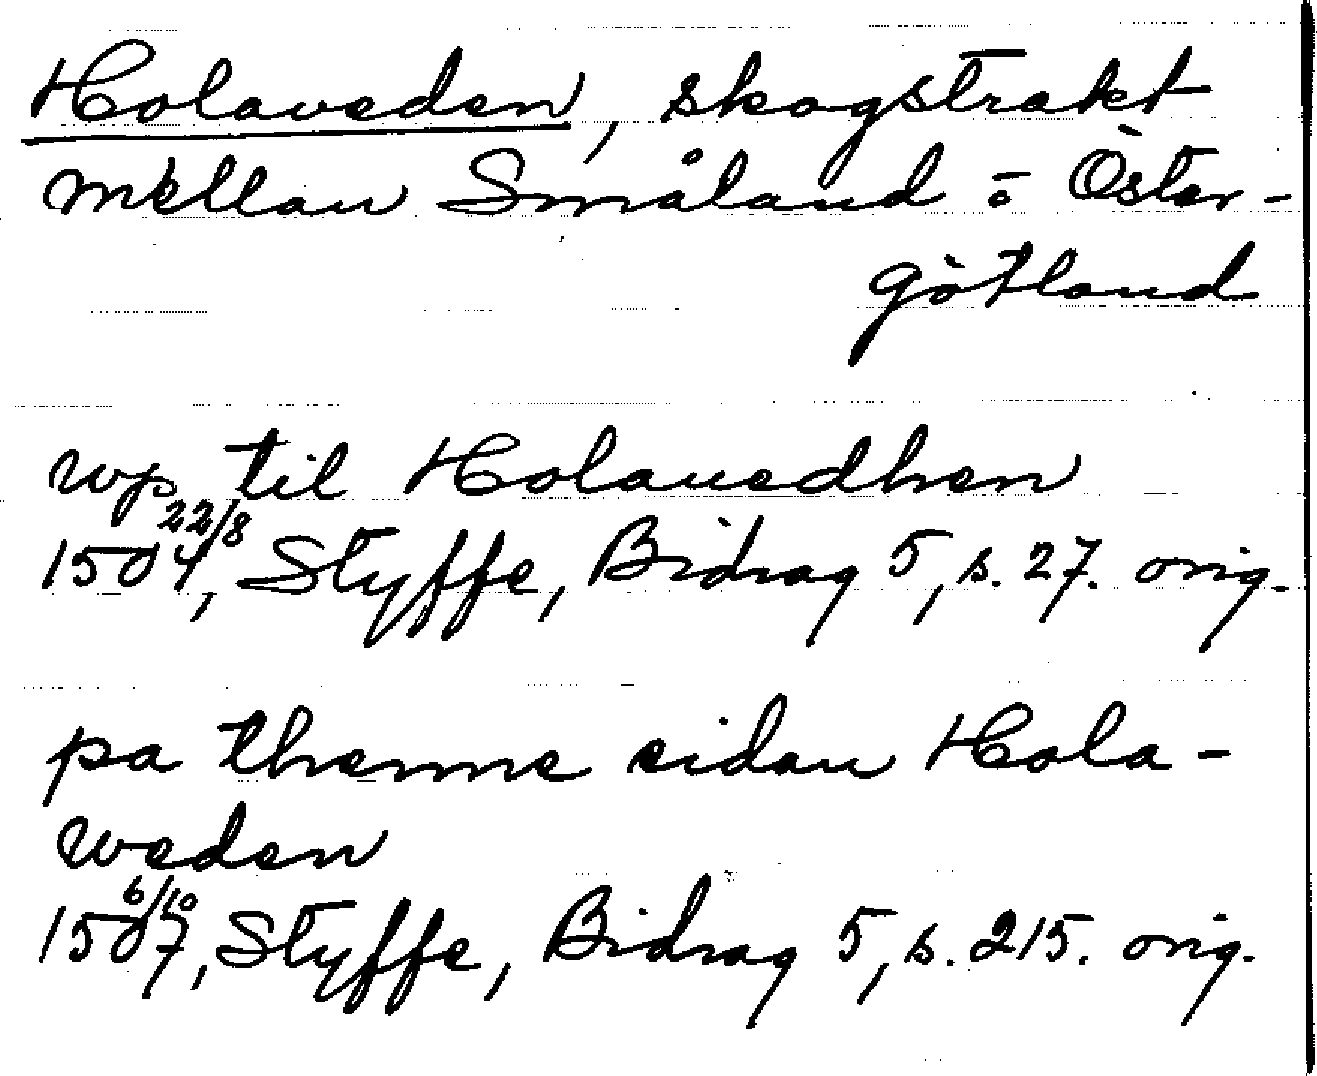 Holaveden, skogstrakt
mellan Småland o Öster-
götland
wp til Holauedhen
22/8
1504, Styffe, Bidrag 5, s. 27. orig.
pa thenne sidan Hola-
weden
6/10
1507, Styffe, Bidrag 5, s. 215. orig.